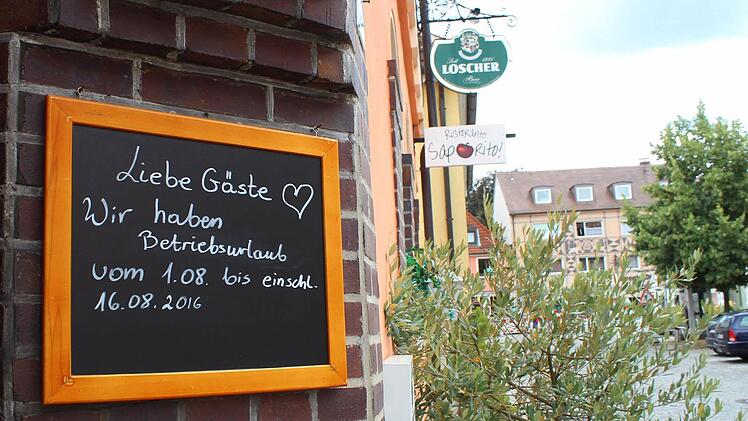 Liebe Gäste
Wir haben
Betriebsurlaub
vom 1.08. bis einschl.
16.08.2016
Seit 1881
LÖSCHER
Bier
Ristorante
Saporito!